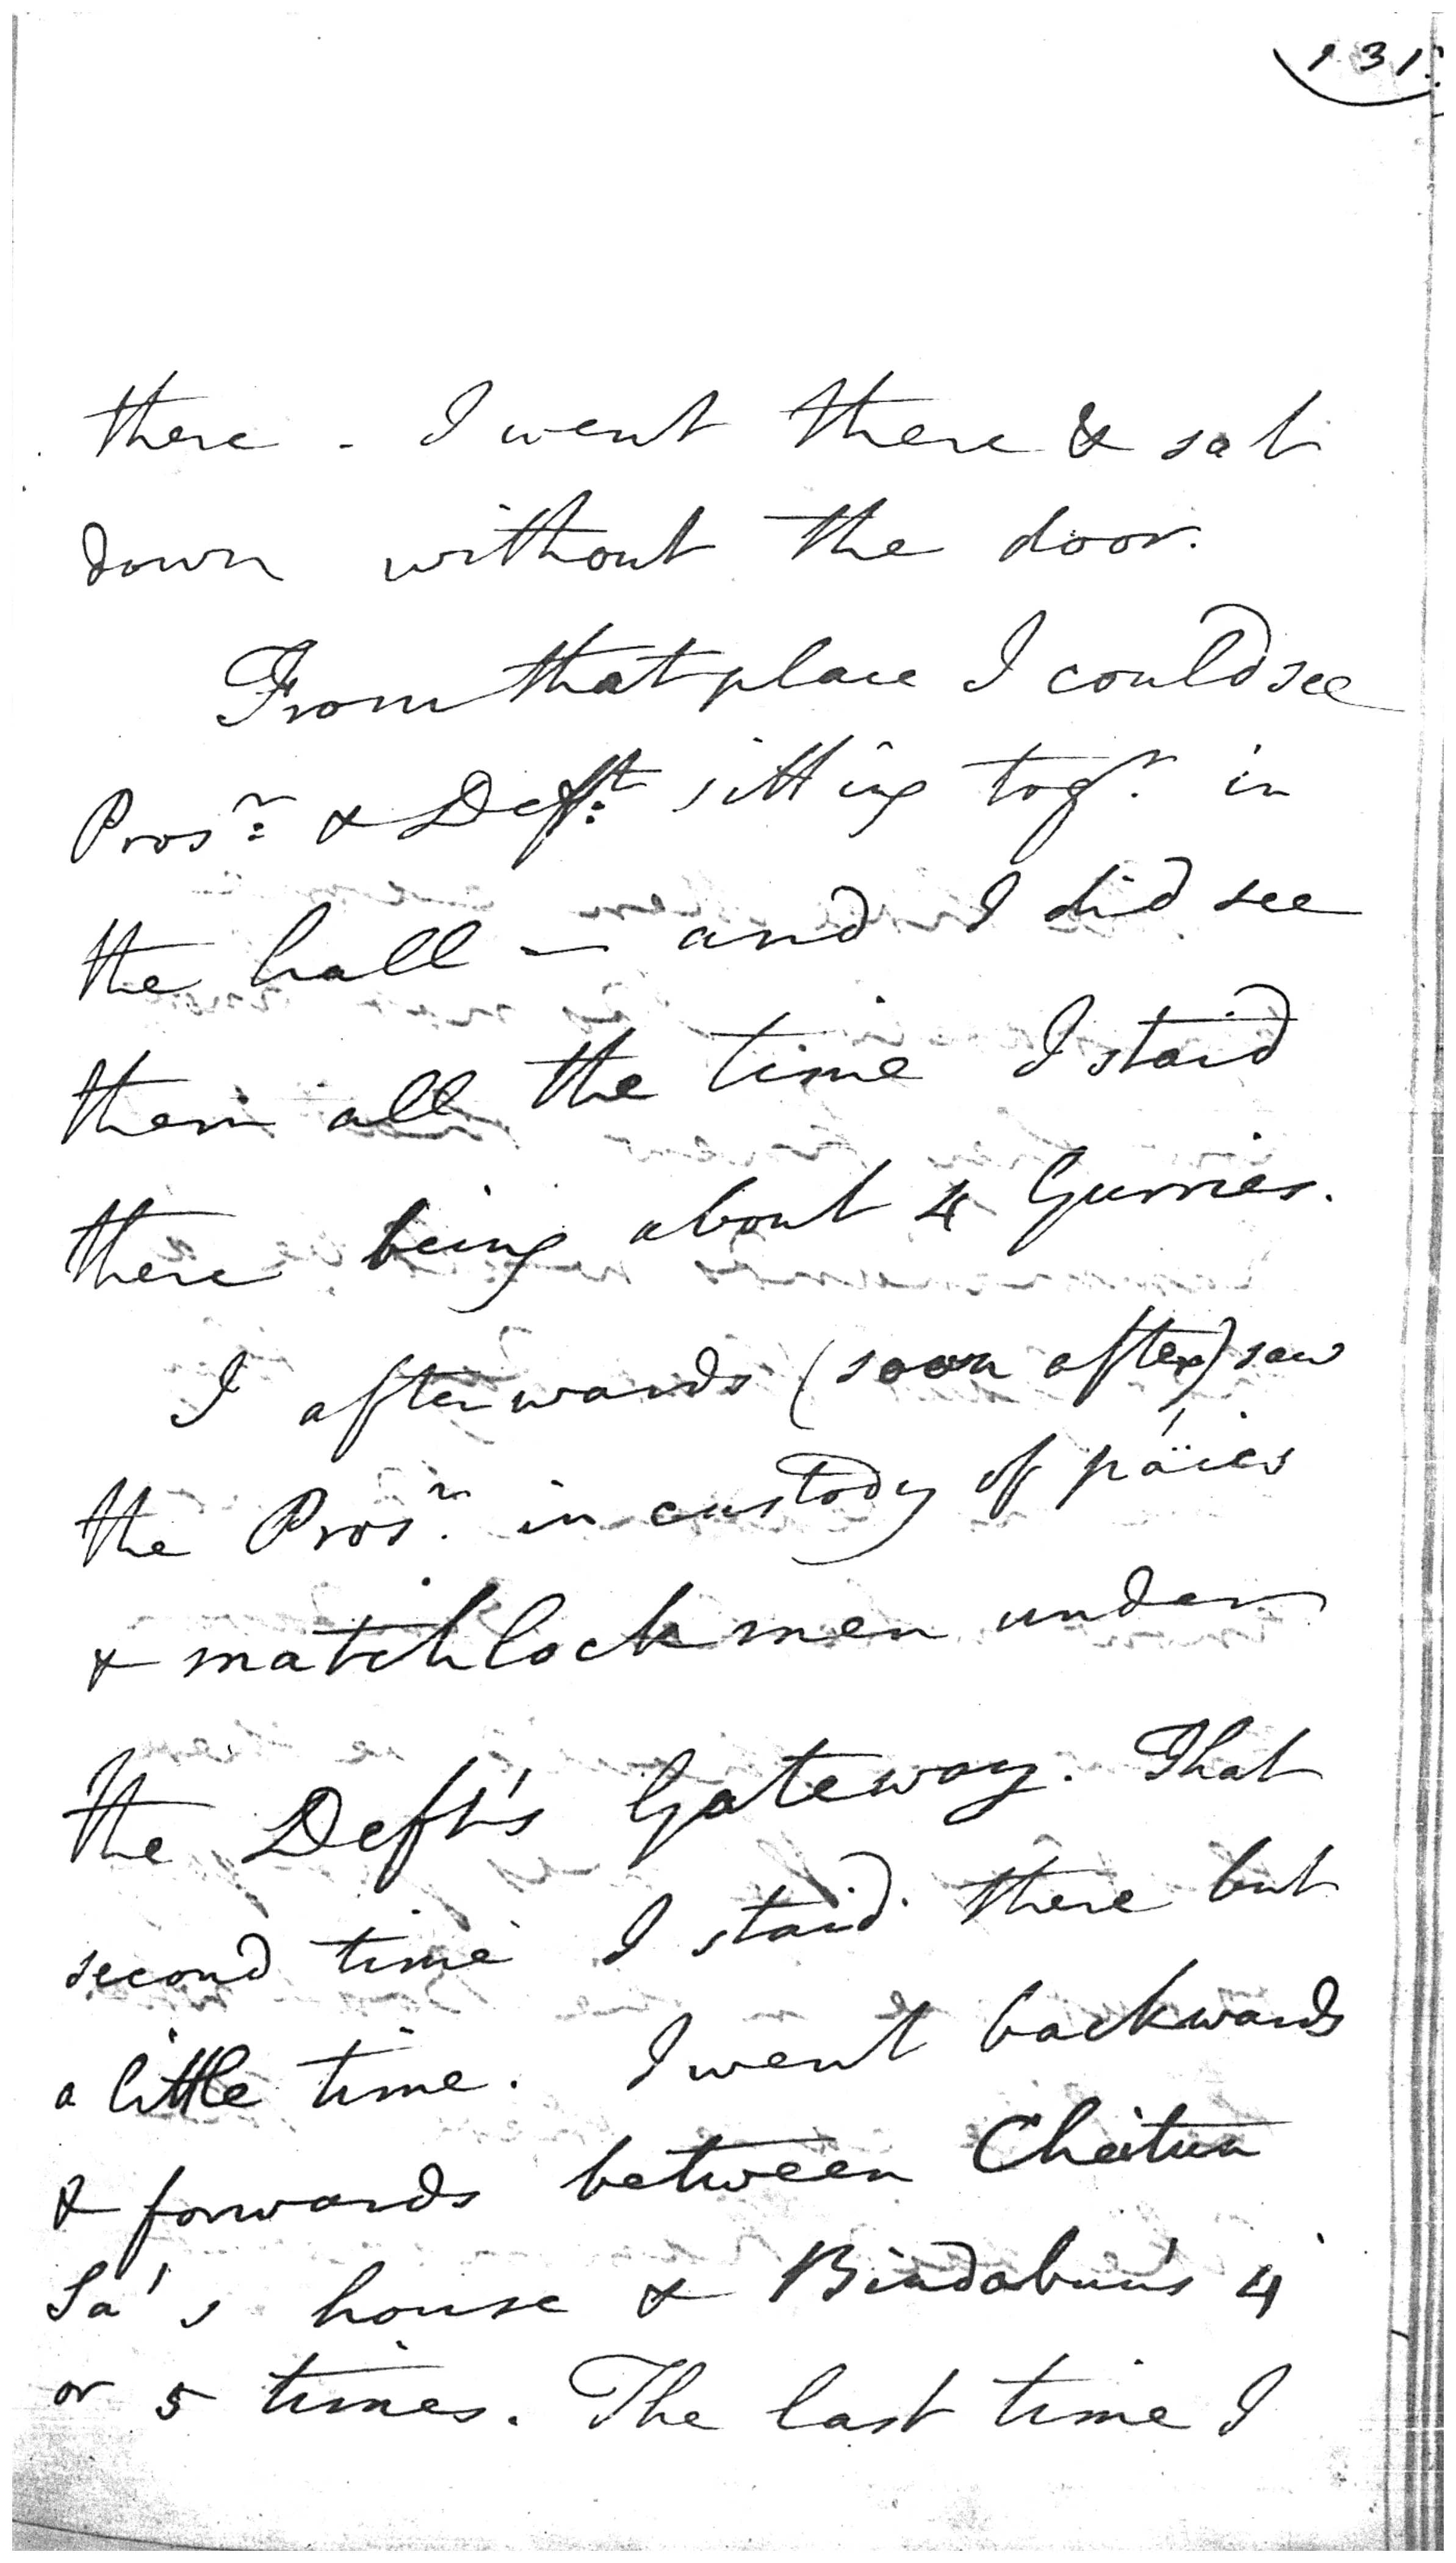 131
there - I went there & sat
down without the door.
From that place I could see
Prosr. & Deft. sitting togr. in
the hall — and I did see
them all the time I staid
there being about 4 Gurries.
I afterwards (soon after) saw
the Prosr. in custody of païes
& matchlock men under
the Deft's Gateway. That
second time I staid there but
a little time. I went backwards
& forwards between Cheitun
Sa's house & Bindabun's 4
or 5 times. The last time I